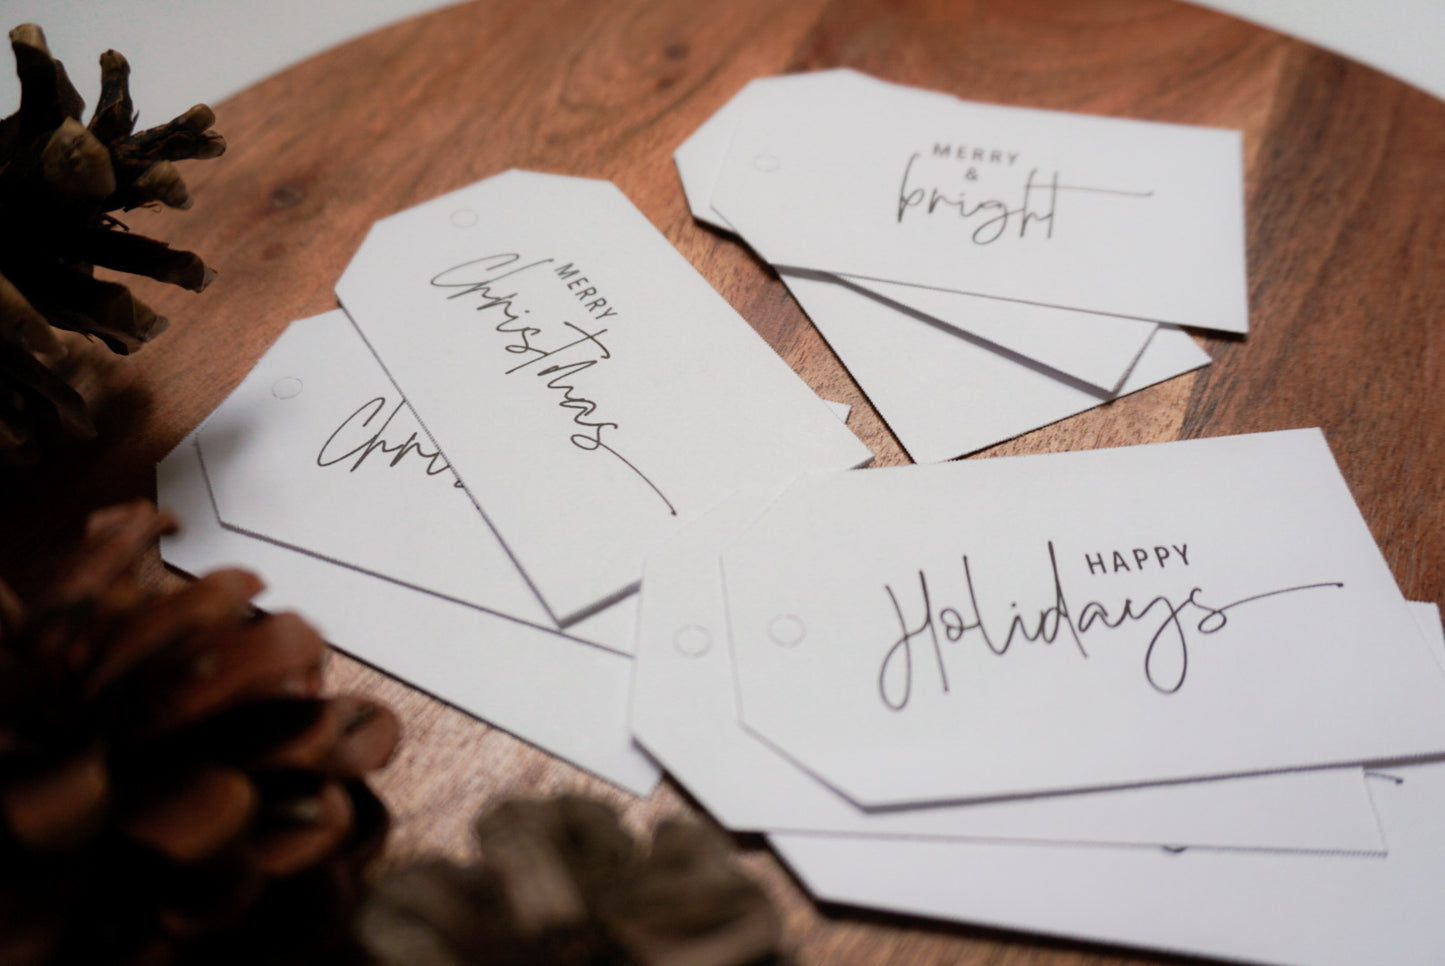 MERRY
&
bright
MERRY
Christmas
HAPPY
Holidays